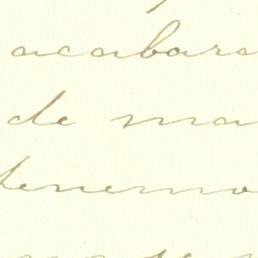 acabare
de ma
tenemo